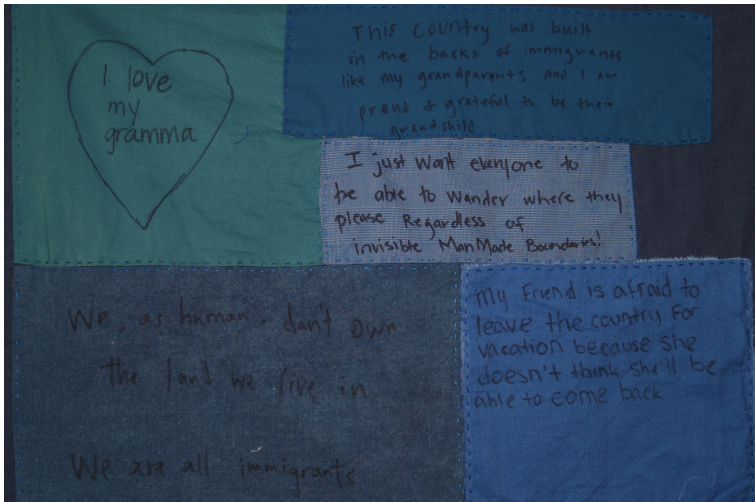 I love
my
gramma
This country was built
in the backs of immigrants
like my grandparents and I am
proud & grateful to be their
grandchild
I just want everyone to
be able to wander where they
please Regardless of
invisible ManMade Boundaries!
We, as human, don't own
the land we live in
We are all immigrants
My Friend is afraid to
leave the country for
vacation because she
doesn't think she'll be
able to come back